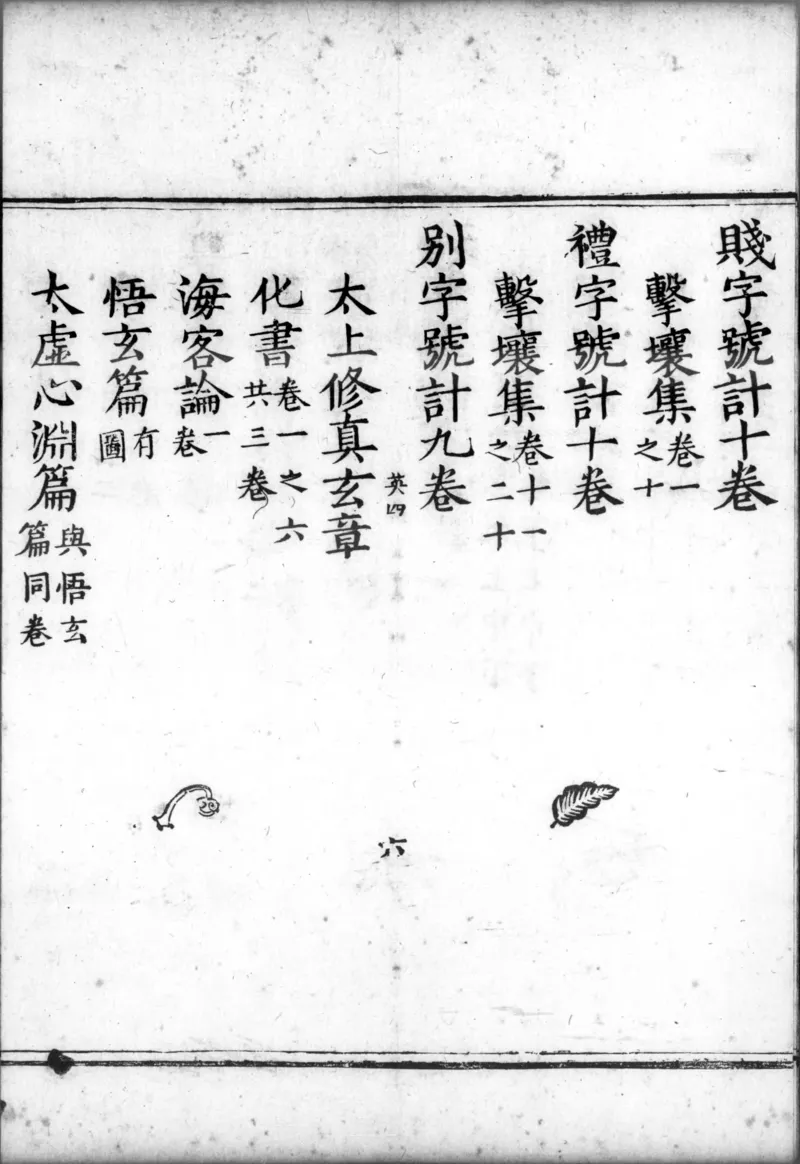 賤字號計十卷
擊壤集卷一之十
禮字號計十卷
擊壤集卷十一之二十
别字號計九卷
英四
六
太上修真玄章
化書卷一之六共三卷
海客論一卷
悟玄篇有圖
太虛心淵篇與悟玄篇同卷